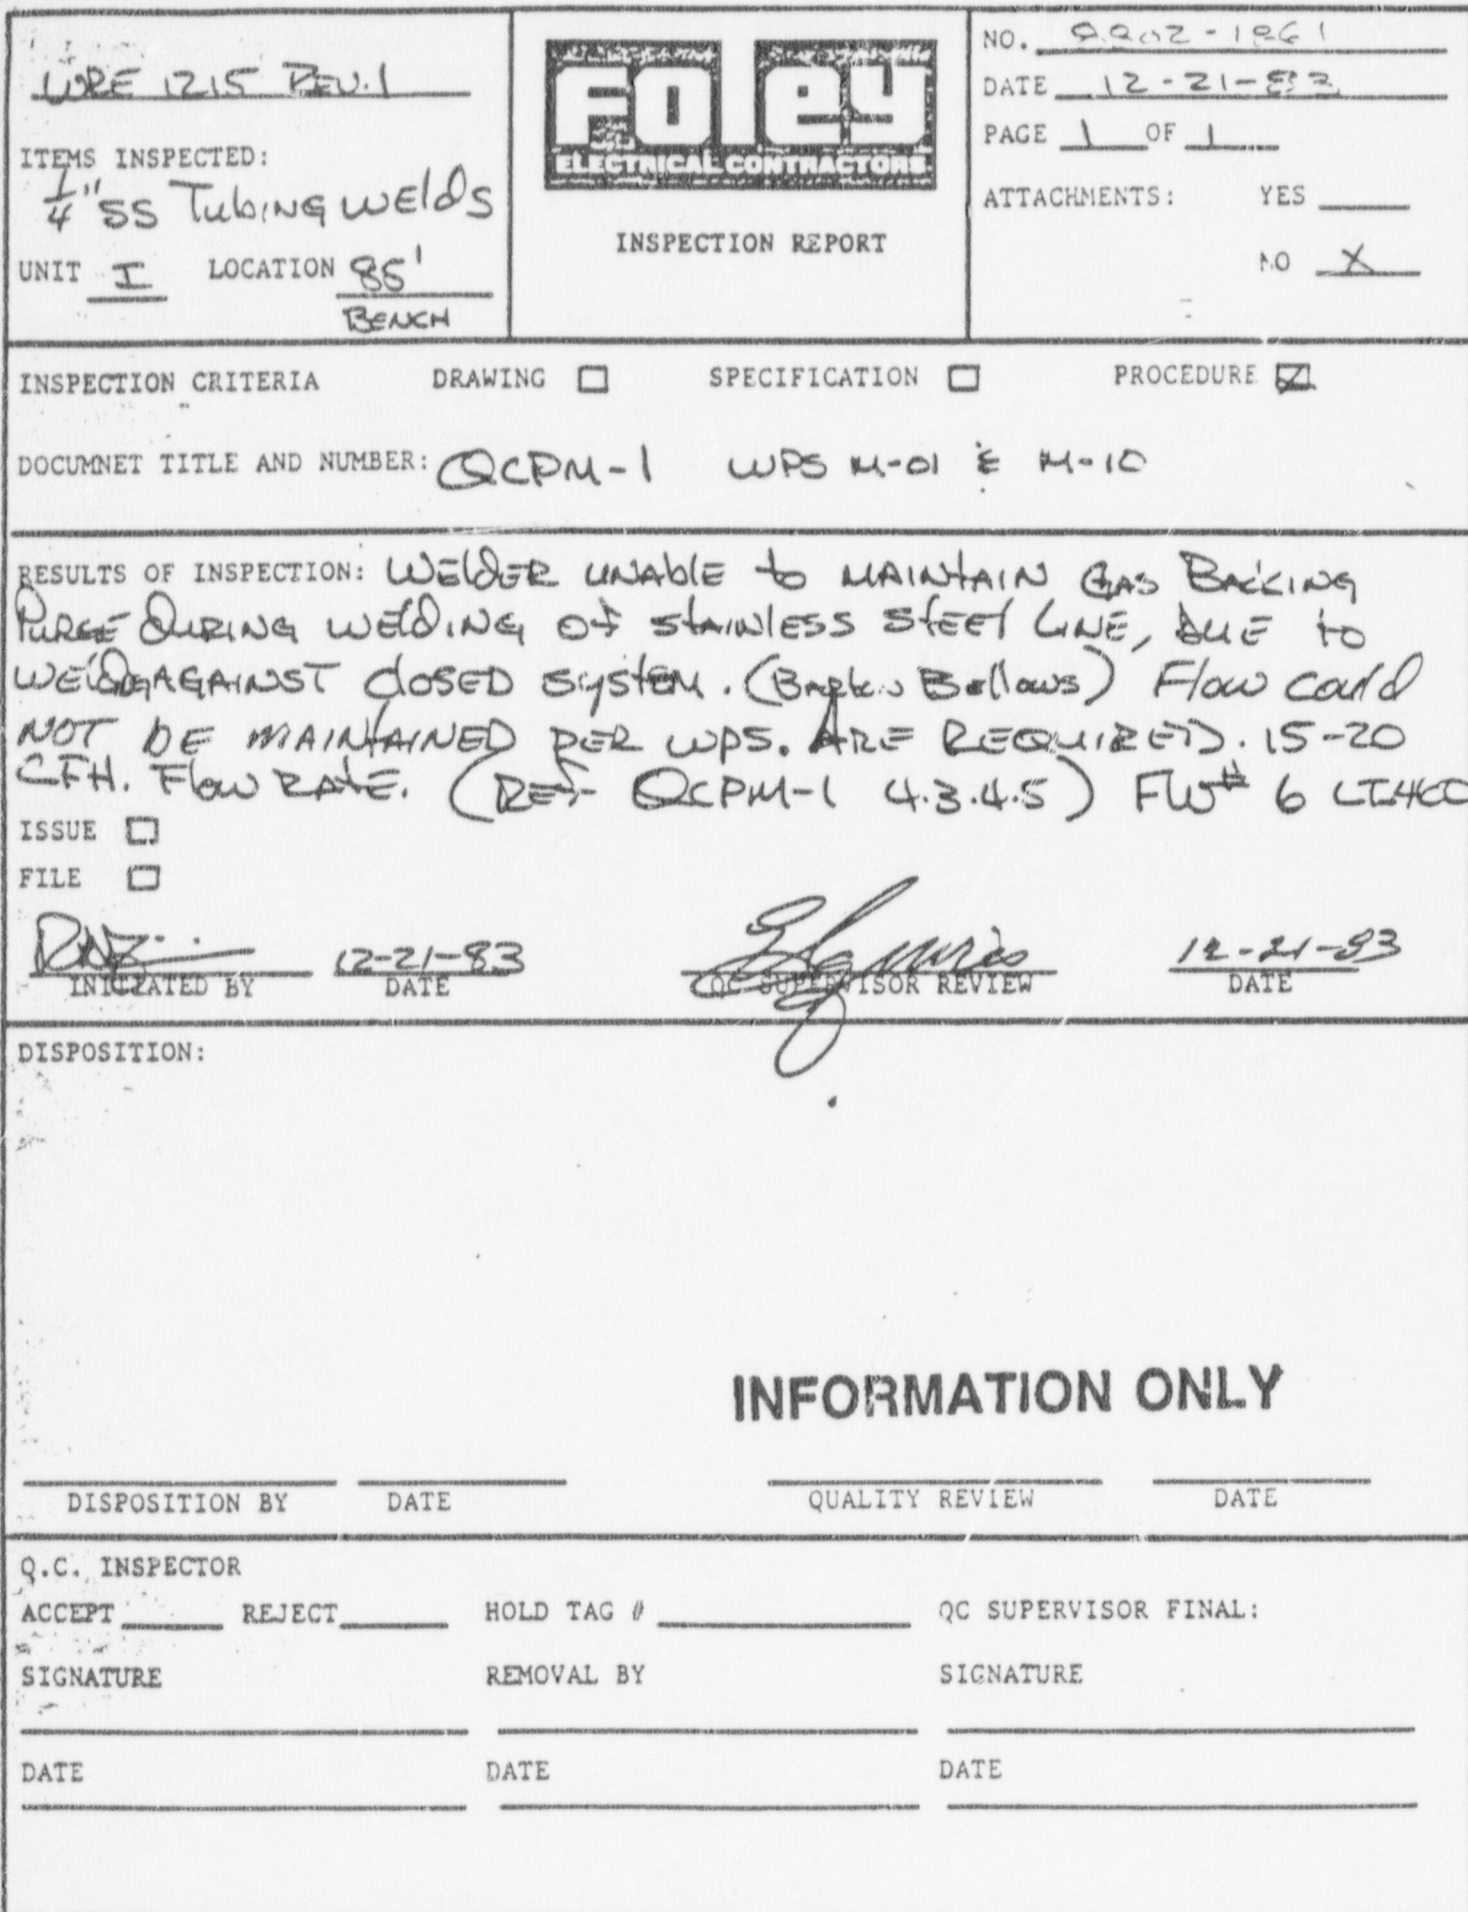 WPE 1215 REV. 1
ITEMS INSPECTED:
1/4" SS Tubing welds
UNIT I LOCATION 85'
BENCH
Foley
ELECTRICAL CONTRACTORS
INSPECTION REPORT
NO.
DATE 12-21-83
PAGE 1 OF 1
ATTACHMENTS: YES
NO X
INSPECTION CRITERIA DRAWING SPECIFICATION PROCEDURE
DOCUMNET TITLE AND NUMBER: QCPM-1 WPS M-01 & M-10
RESULTS OF INSPECTION: WELDER UNABLE to MAINTAIN GAS BACKING
PURGE DURING WELDING OF STAINLESS STEEL LINE, DUE to
AGAINST CLOSED SYSTEM. (Barton Bellows) Flow could
NOT BE MAINTAINED PER WPS. ARE REQUIRED. 15-20
CFH. Flow RATE. (REF QCPM-1 4.3.4.5) FW# 6
ISSUE
FILE
12-21-83 12-21-83
INITIATED BY DATE QC SUPERVISOR REVIEW DATE
DISPOSITION:
INFORMATION ONLY
DISPOSITION BY DATE QUALITY REVIEW DATE
Q.C. INSPECTOR
ACCEPT REJECT HOLD TAG # QC SUPERVISOR FINAL:
SIGNATURE REMOVAL BY SIGNATURE
DATE DATE DATE